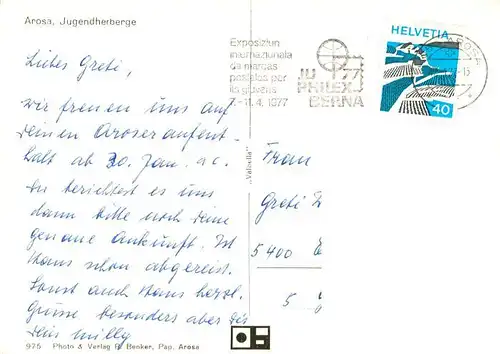 Arosa, Jugendherberge
Exposiziun
internaziunala
da marcas
postalas per
ils giuvens
7.-11.4.1977
JU 77
PHILEX
BERNA
HELVETIA
40
AROSA
Liebes Greti,
wir freuen uns auf
deinen Aroseraufent-
halt ab 30. Jan. a.c.
Du berichtest es uns
dann bitte noch deine
genaue Ankunft. Ist
Hans schon abgereist.
Sonst auch Hans herzl.
Grüsse besonders aber dir
Dein Willy
"Valbella"
Frau
Greti
5400
5
976 Photo & Verlag R. Benker, Pap. Arosa